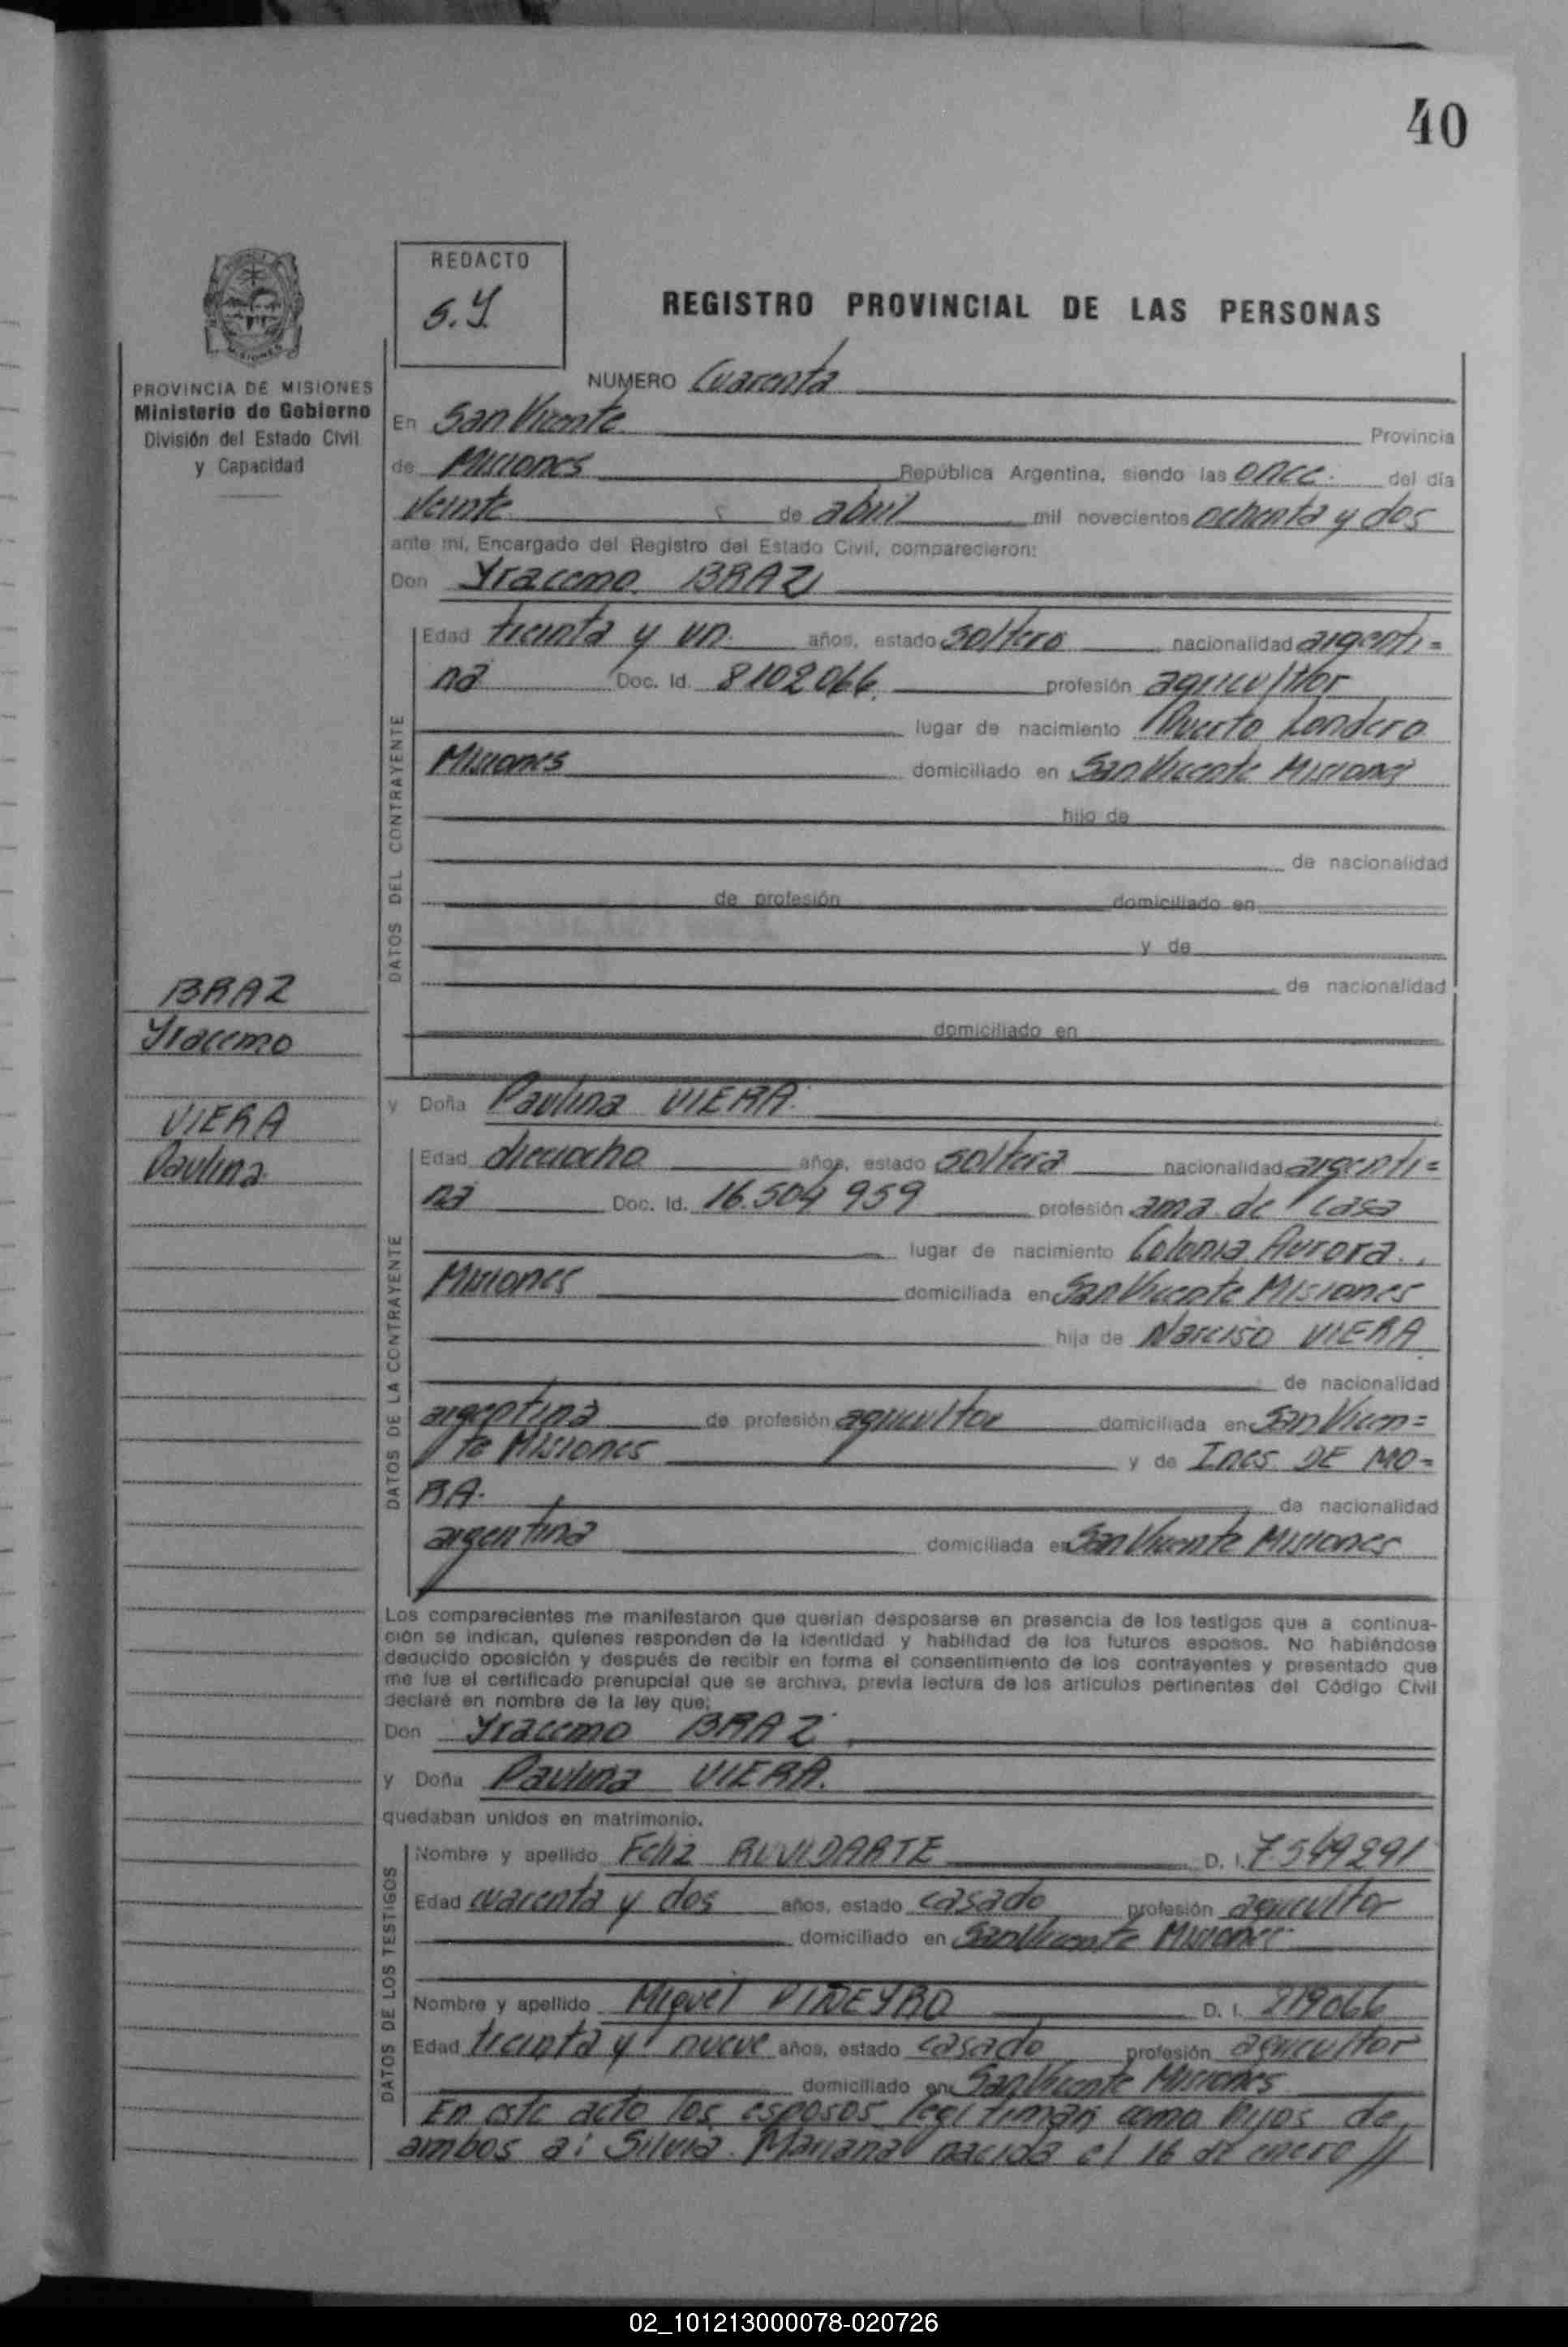 40
REDACTO
S.Y.
REGISTRO PROVINCIAL DE LAS PERSONAS
PROVINCIA DE MISIONES
Ministerio de Gobierno
División del Estado Civil
y Capacidad
NUMERO Cuarenta
En San Vicente Provincia
de Misiones República Argentina, siendo las once. del día
Veinte de abril mil novecientos ochenta y dos
ante mí, Encargado del Registro del Estado Civil, comparecieron:
Don Yracemo BRAZ
DATOS DEL CONTRAYENTE
Edad treinta y un. años, estado soltero nacionalidad argenti=
na Doc. Id. 8102066. profesión agricultor
lugar de nacimiento Puerto Londero
Misiones domiciliado en San Vicente Misiones
hijo de
de nacionalidad
de profesión domiciliado en
y de
de nacionalidad
domiciliado en
BRAZ
Yracemo
VIERA
Paulina
y Doña Paulina VIERA.
DATOS DE LA CONTRAYENTE
Edad dieciocho años, estado soltera nacionalidad argenti=
na Doc. Id. 16.504 959 profesión ama de casa
lugar de nacimiento Colonia Aurora.
Misiones domiciliada en San Vicente Misiones
hija de Narciso VIERA
de nacionalidad
argentina de profesión agricultor domiciliada en San Vicen=
te Misiones y de Ines DE MO=
RA. de nacionalidad
argentina domiciliada en San Vicente Misiones
Los comparecientes me manifestaron que querían desposarse en presencia de los testigos que a continua-
ción se indican, quienes responden de la identidad y habilidad de los futuros esposos. No habiéndose
deducido oposición y después de recibir en forma el consentimiento de los contrayentes y presentado que
me fue el certificado prenupcial que se archiva, previa lectura de los artículos pertinentes del Código Civil
declaré en nombre de la ley que:
Don Yracemo BRAZ
y Doña Paulina VIERA.
quedaban unidos en matrimonio.
DATOS DE LOS TESTIGOS
Nombre y apellido Feliz D. I. 7549291
Edad cuarenta y dos años, estado casado profesión agricultor
domiciliado en San Vicente Misiones
Nombre y apellido Miguel PIÑEYRO D. I. 219066
Edad treinta y nueve años, estado casado profesión agricultor
domiciliado en San Vicente Misiones
En este acto los esposos legitiman como hijos de
ambos a: Silvia Mariana nacida el 16 de enero //
02_101213000078-020726